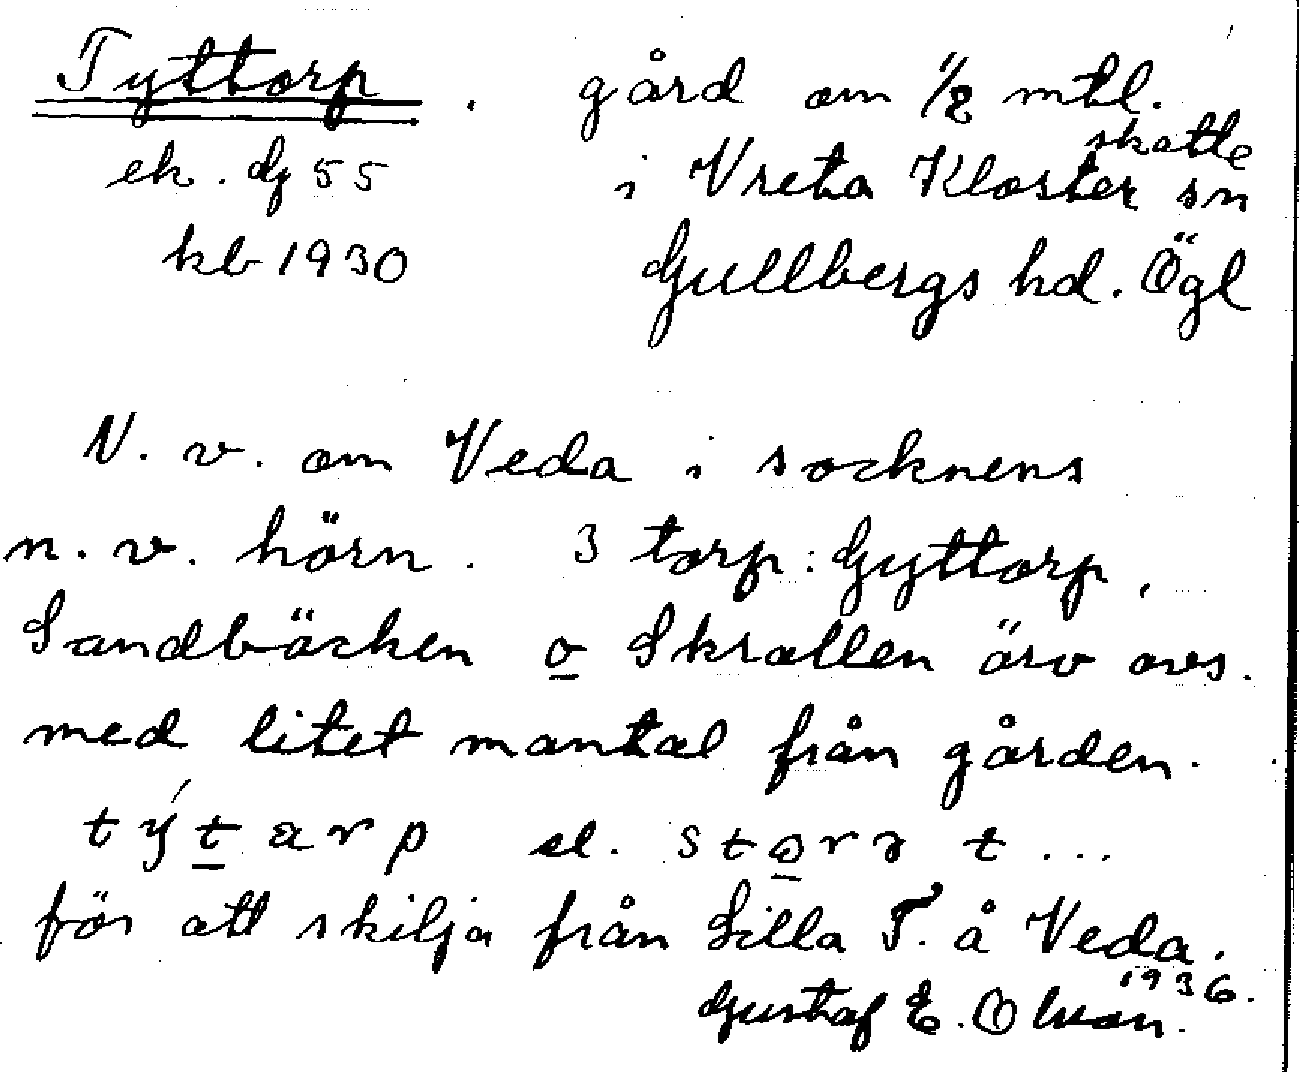 Tyttorp . gård om 1/2 mtl.
skatte
ek. bl 55 i Vreta Kloster sn
kb 1930 Gullbergs hd. Ögl
N. v. om Veda i socknens
n. v. hörn. 3 torp: Gyttorp,
Sandbäcken o Skrallen äro avs.
med litet mantal från gården.
tý̀tarp el. stora t...
för att skilja från Lilla T. å Veda.
1936.
Gustaf E. Olson.